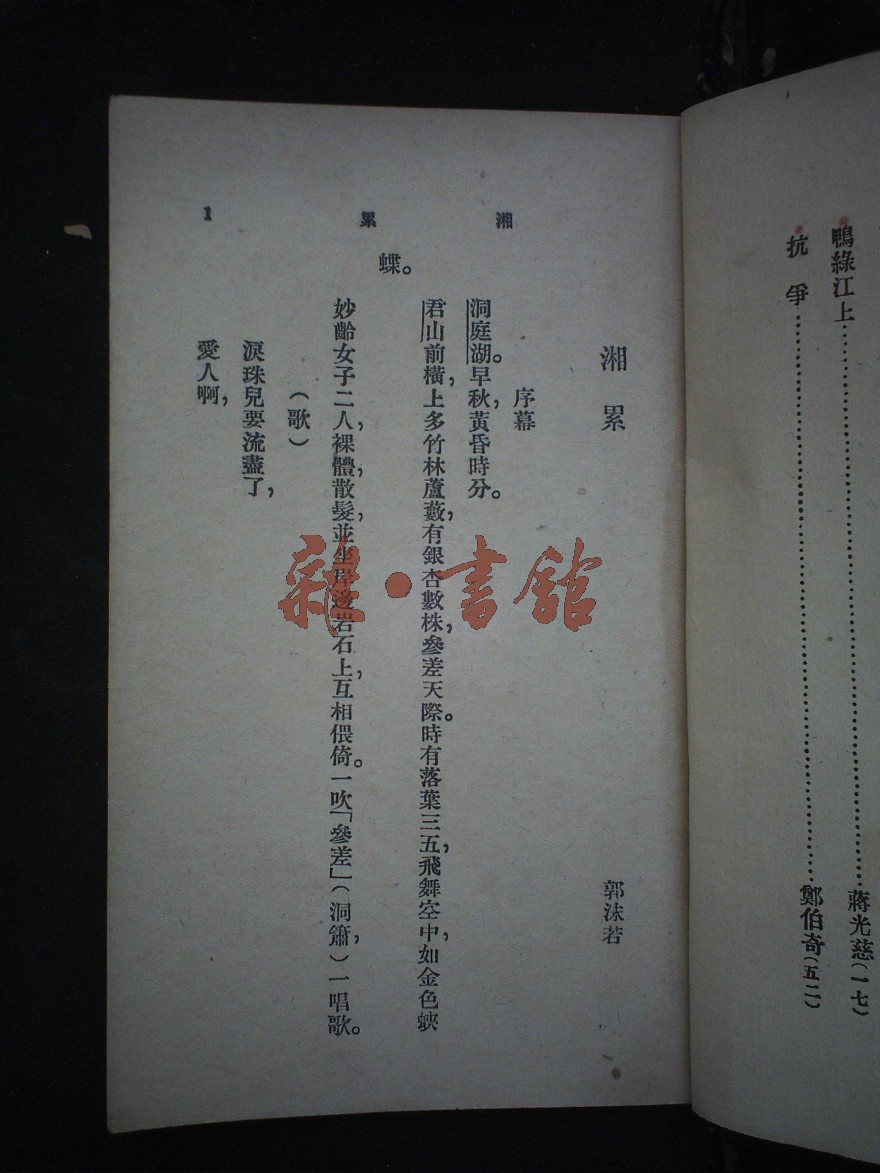 鴨綠江上……蔣光慈(一七)
抗爭……鄭伯奇(五二)
湘累
1
湘累
郭沫若
序幕
洞庭湖。早秋,黃昏時分。
君山前橫,上多竹林蘆藪,有銀杏數株,參差天際。時有落葉三五,飛舞空中,如金色蛺
蝶。
妙齡女子二人,裸體,散髮,並坐岸邊岩石上,互相偎倚。一吹「參差」(洞簫,)一唱歌。
(歌)
淚珠兒要流盡了,
愛人啊,
雜·書館